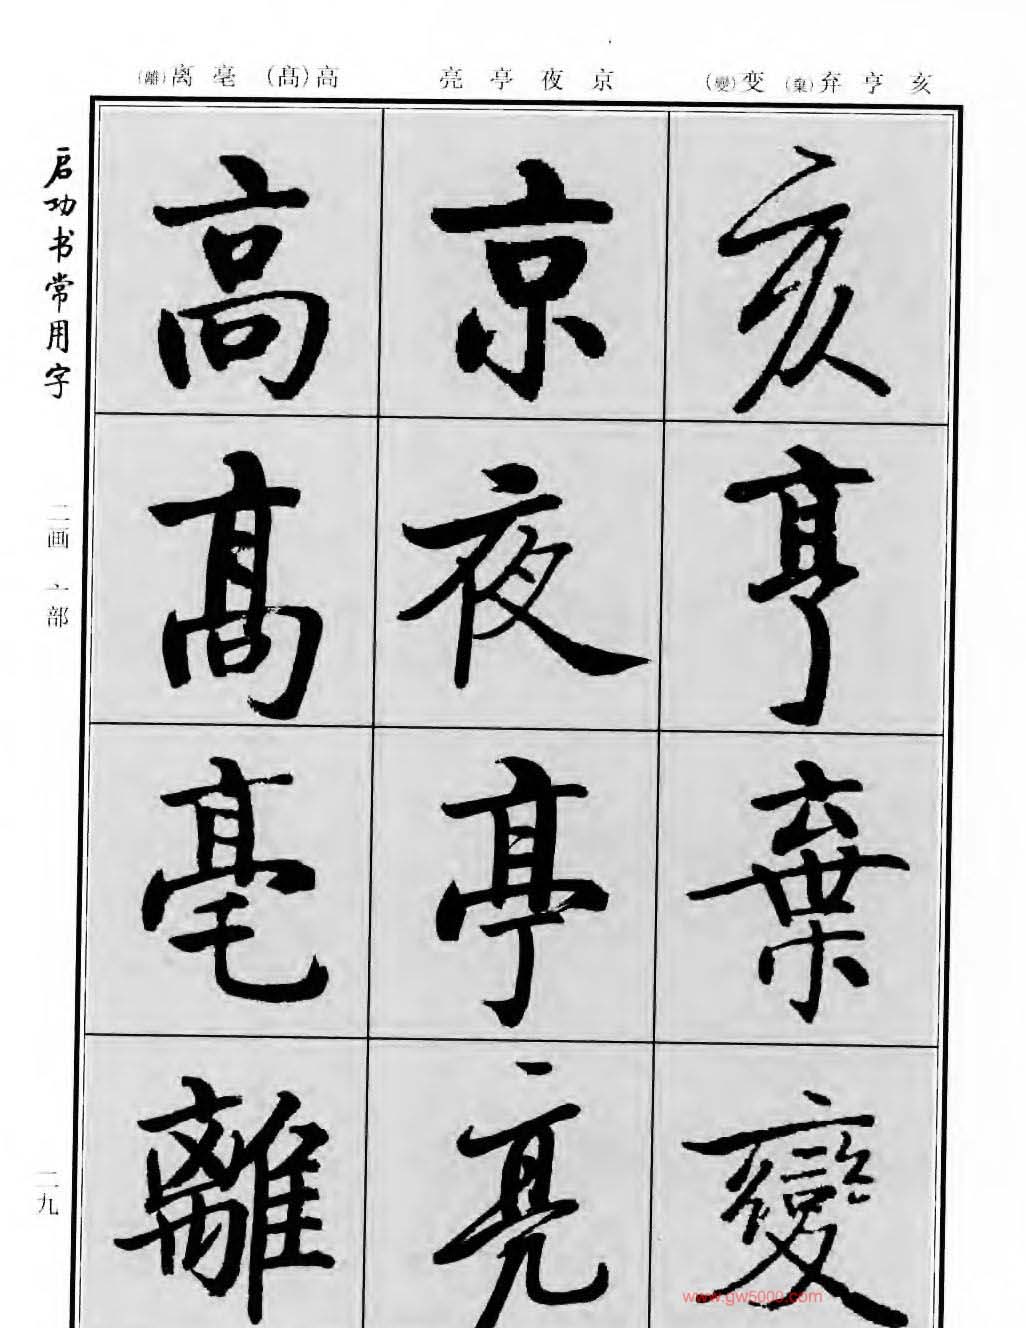 亥亨弃(棄)变(變)
京夜亭亮
高(髙)毫离(離)
亥
亨
棄
變
京
夜
亭
亮
高
髙
毫
離
启功书常用字
二画 亠部
二九
www.gw5000.com